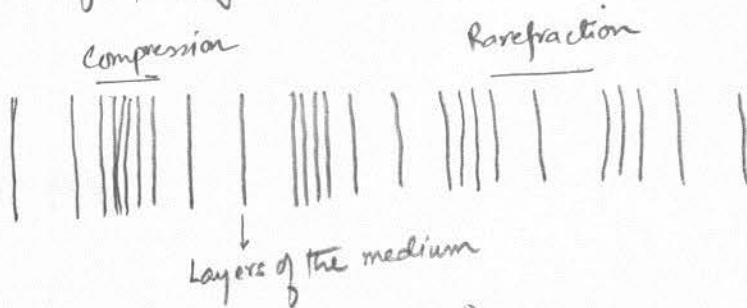 Compression
Rarefraction
Layers of the medium